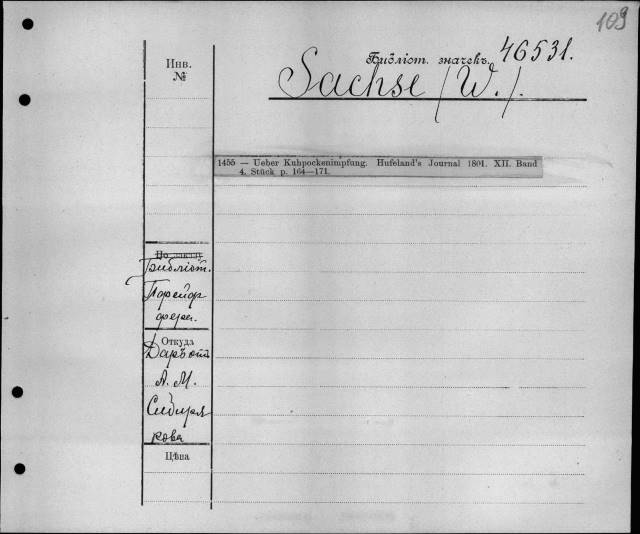 109
Инв.
№
Библіот. значекъ. 46531.
Sachse (W.).
1455 — Ueber Kuhpockenimpfung. Hufeland's Journal 1801. XII. Band
4. Stück p. 164—171.
Библіот.
Порейор
фера.
Откуда
Даръ отъ
А. М.
Сибиря
кова
Цѣна